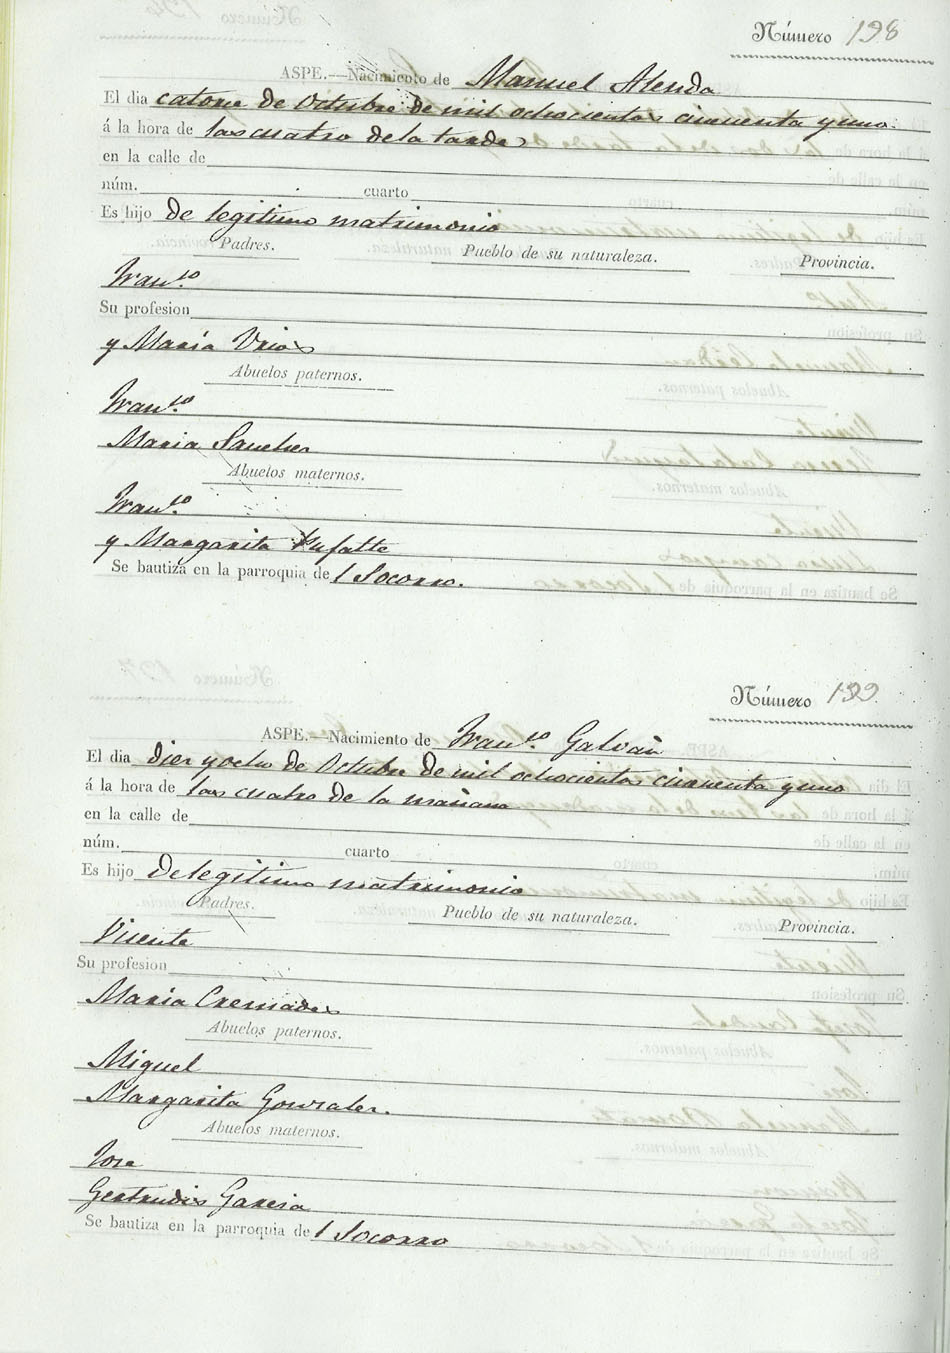 Número 198
ASPE.—Nacimiento de Manuel Alenda
El dia catorce de Octubre de mil ochocientos cincuenta y uno
á la hora de las cuatro de la tarde
en la calle de
núm. cuarto
Es hijo de legitimo matrimonio
Padres. Pueblo de su naturaleza. Provincia.
Fran.co
Su profesion
y Maria
Abuelos paternos.
Fran.co
Maria Sanchez
Abuelos maternos.
Fran.co
y Margarita Pufalte
Se bautiza en la parroquia de l Socorro.
Número 199.
ASPE.—Nacimiento de Fran.co Galvañ
El dia diez y ocho de Octubre de mil ochocientos cincuenta y uno
á la hora de las cuatro de la mañana
en la calle de
núm. cuarto
Es hijo de legitimo matrimonio
Padres. Pueblo de su naturaleza. Provincia.
Vicente
Su profesion
Maria Cremades
Abuelos paternos.
Miguel
Margarita Gonzalez.
Abuelos maternos.
Jose
Gertrudis Garcia
Se bautiza en la parroquia de l Socorro